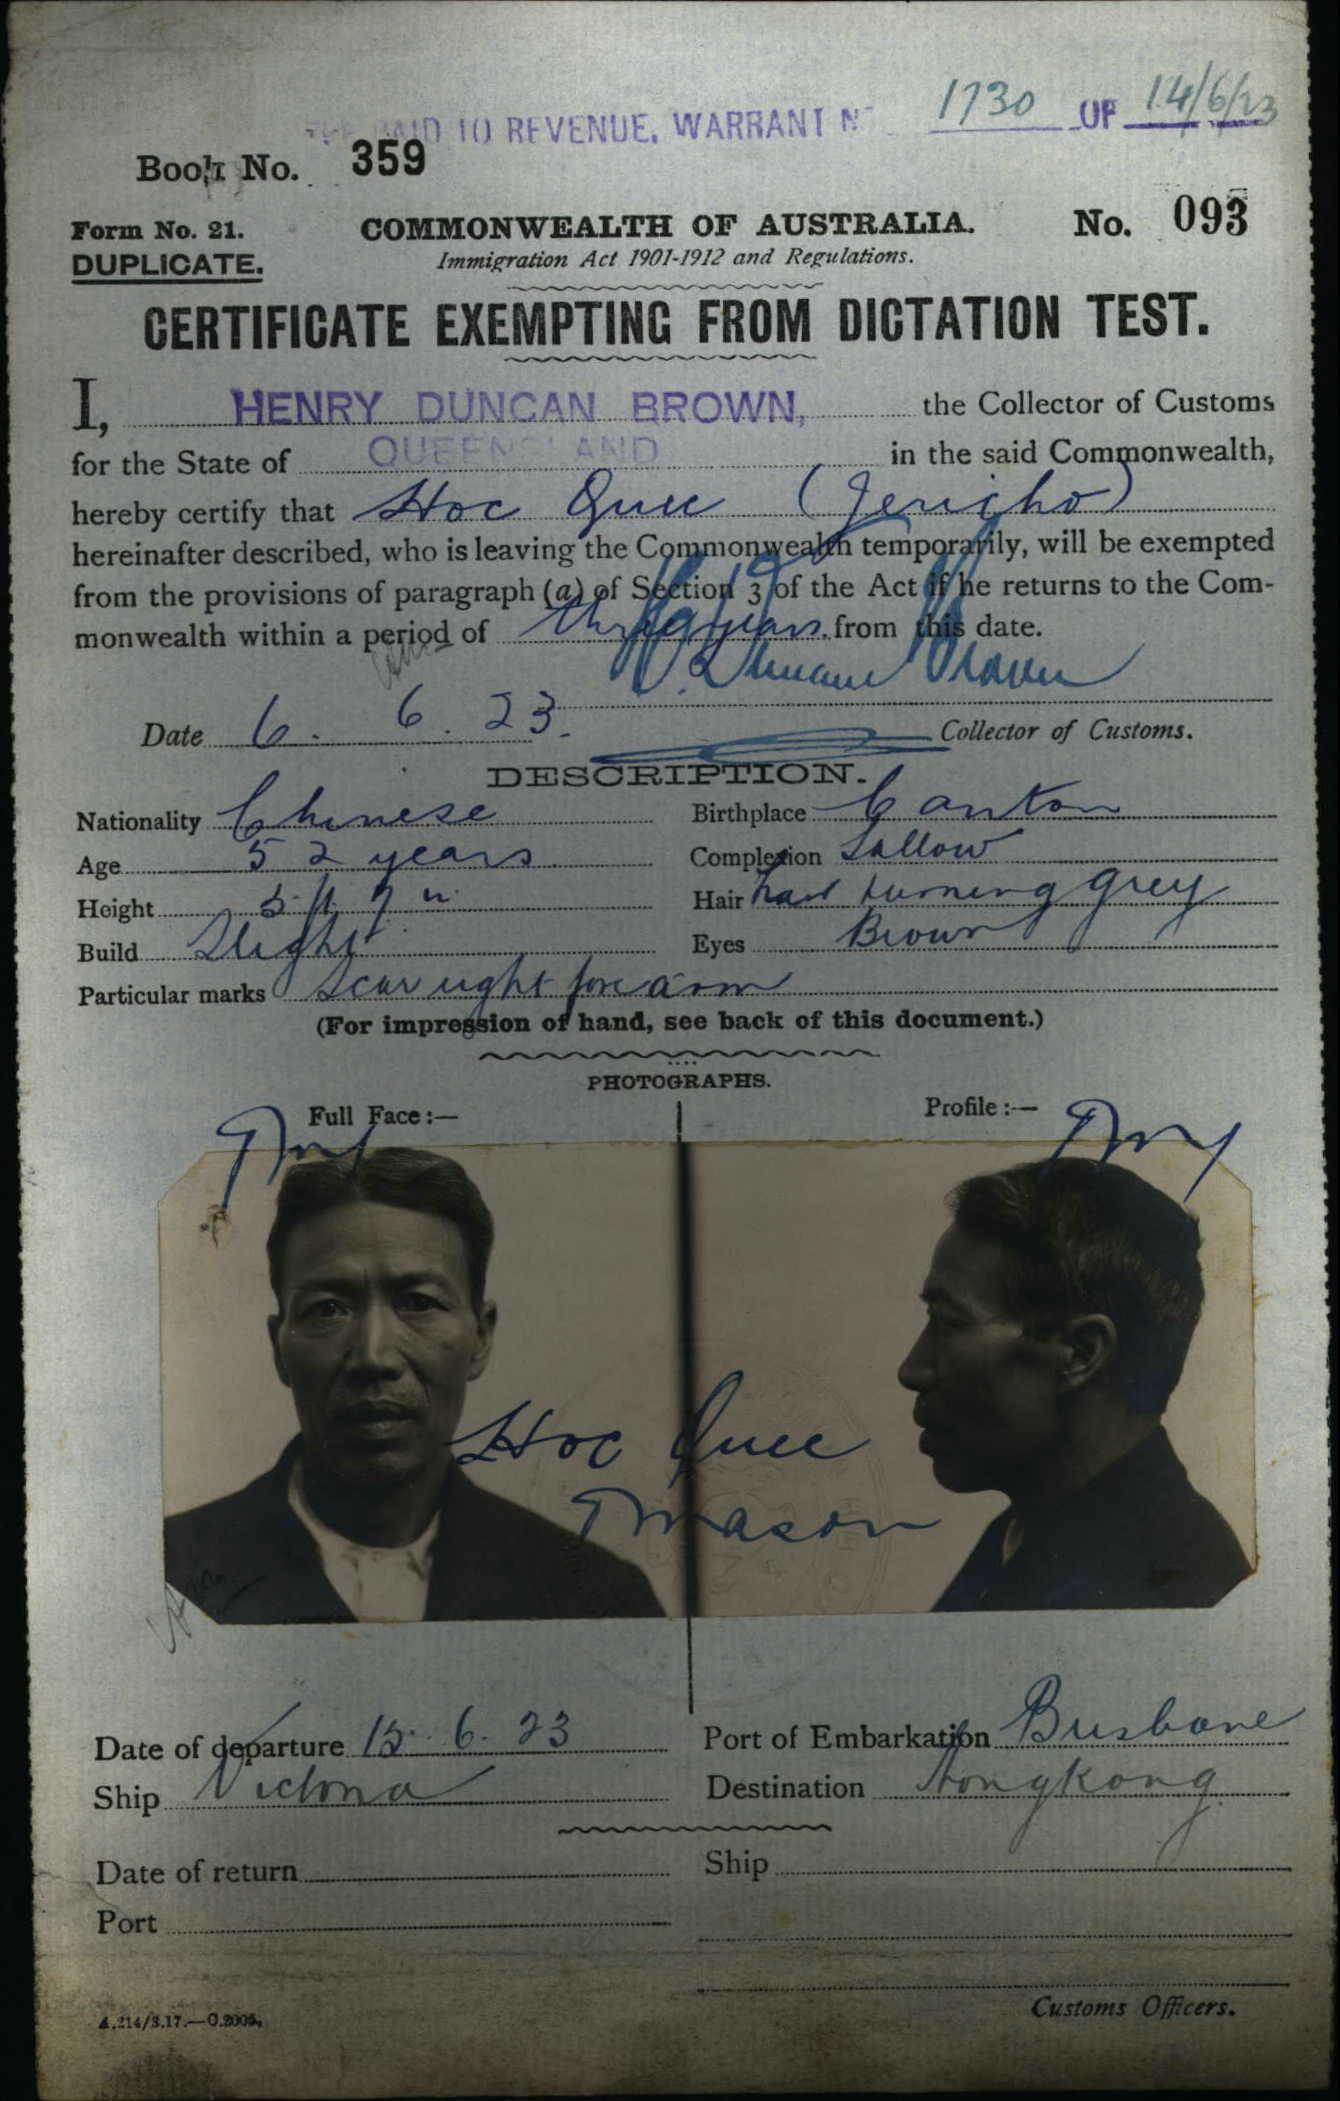 PAID TO REVENUE. WARRANT No 1730 OF 14/6/23
Book No. 359
Form No. 21. COMMONWEALTH OF AUSTRALIA. No. 093
DUPLICATE. Immigration Act 1901-1912 and Regulations.
CERTIFICATE EXEMPTING FROM DICTATION TEST.
I, HENRY DUNCAN BROWN, the Collector of Customs
for the State of QUEENSLAND in the said Commonwealth,
hereby certify that Hoc Quee (Jericho)
hereinafter described, who is leaving the Commonwealth temporarily, will be exempted
from the provisions of paragraph (a) of Section 3 of the Act if he returns to the Com-
monwealth within a period of three years from this date.
H. Duncan Brown
Date 6. 6. 23. Collector of Customs.
DESCRIPTION.
Nationality Chinese Birthplace Canton
Age 52 years Complexion Sallow
Height 5 ft 7 in Hair turning grey
Build Slight Eyes Brown
Particular marks Scar right fore arm
(For impression of hand, see back of this document.)
PHOTOGRAPHS.
Full Face:— Profile:—
Hoc Quee
Mason
Date of departure 15. 6. 23 Port of Embarkation Brisbane
Ship Victoria Destination Hongkong
Date of return Ship
Port
Customs Officers.
A.214/3.17.—C.2005.